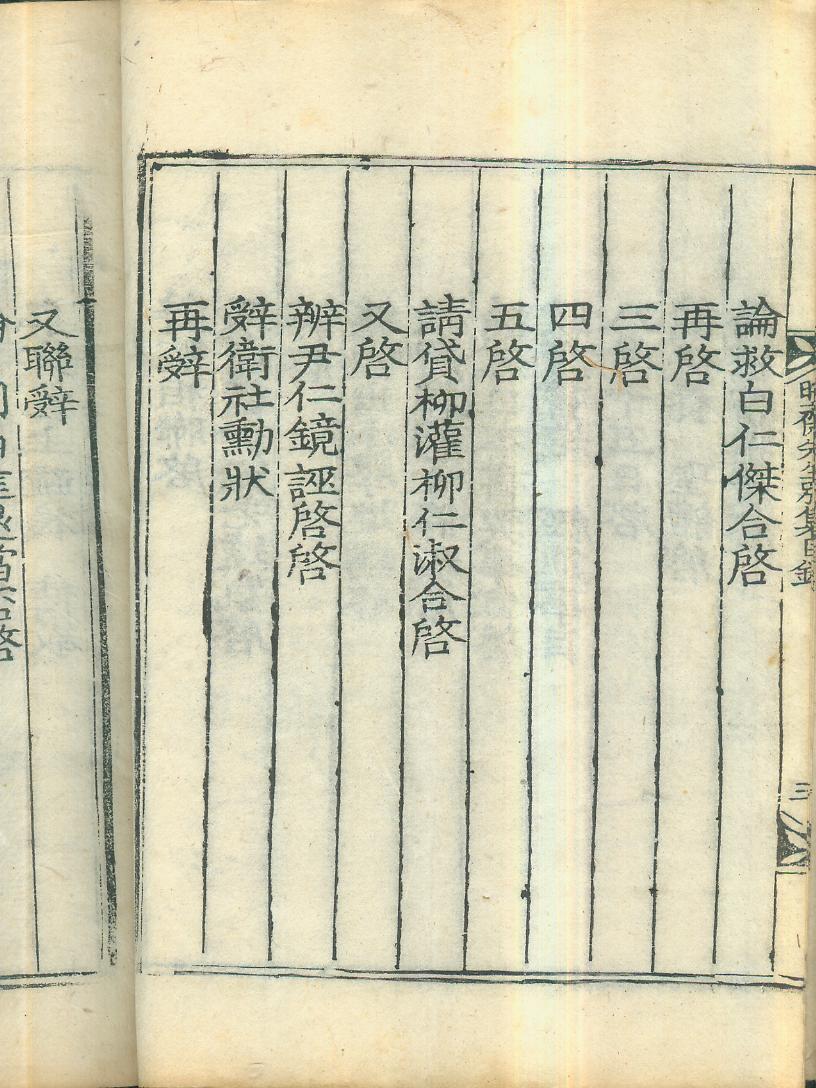 論救白仁傑合啓
再啓
三啓
四啓
五啓
請貸柳灌柳仁淑合啓
又啓
辨尹仁鏡誣啓啓
辤衛社勳狀
再辤
先生別集目錄
三
又聯辤
啓